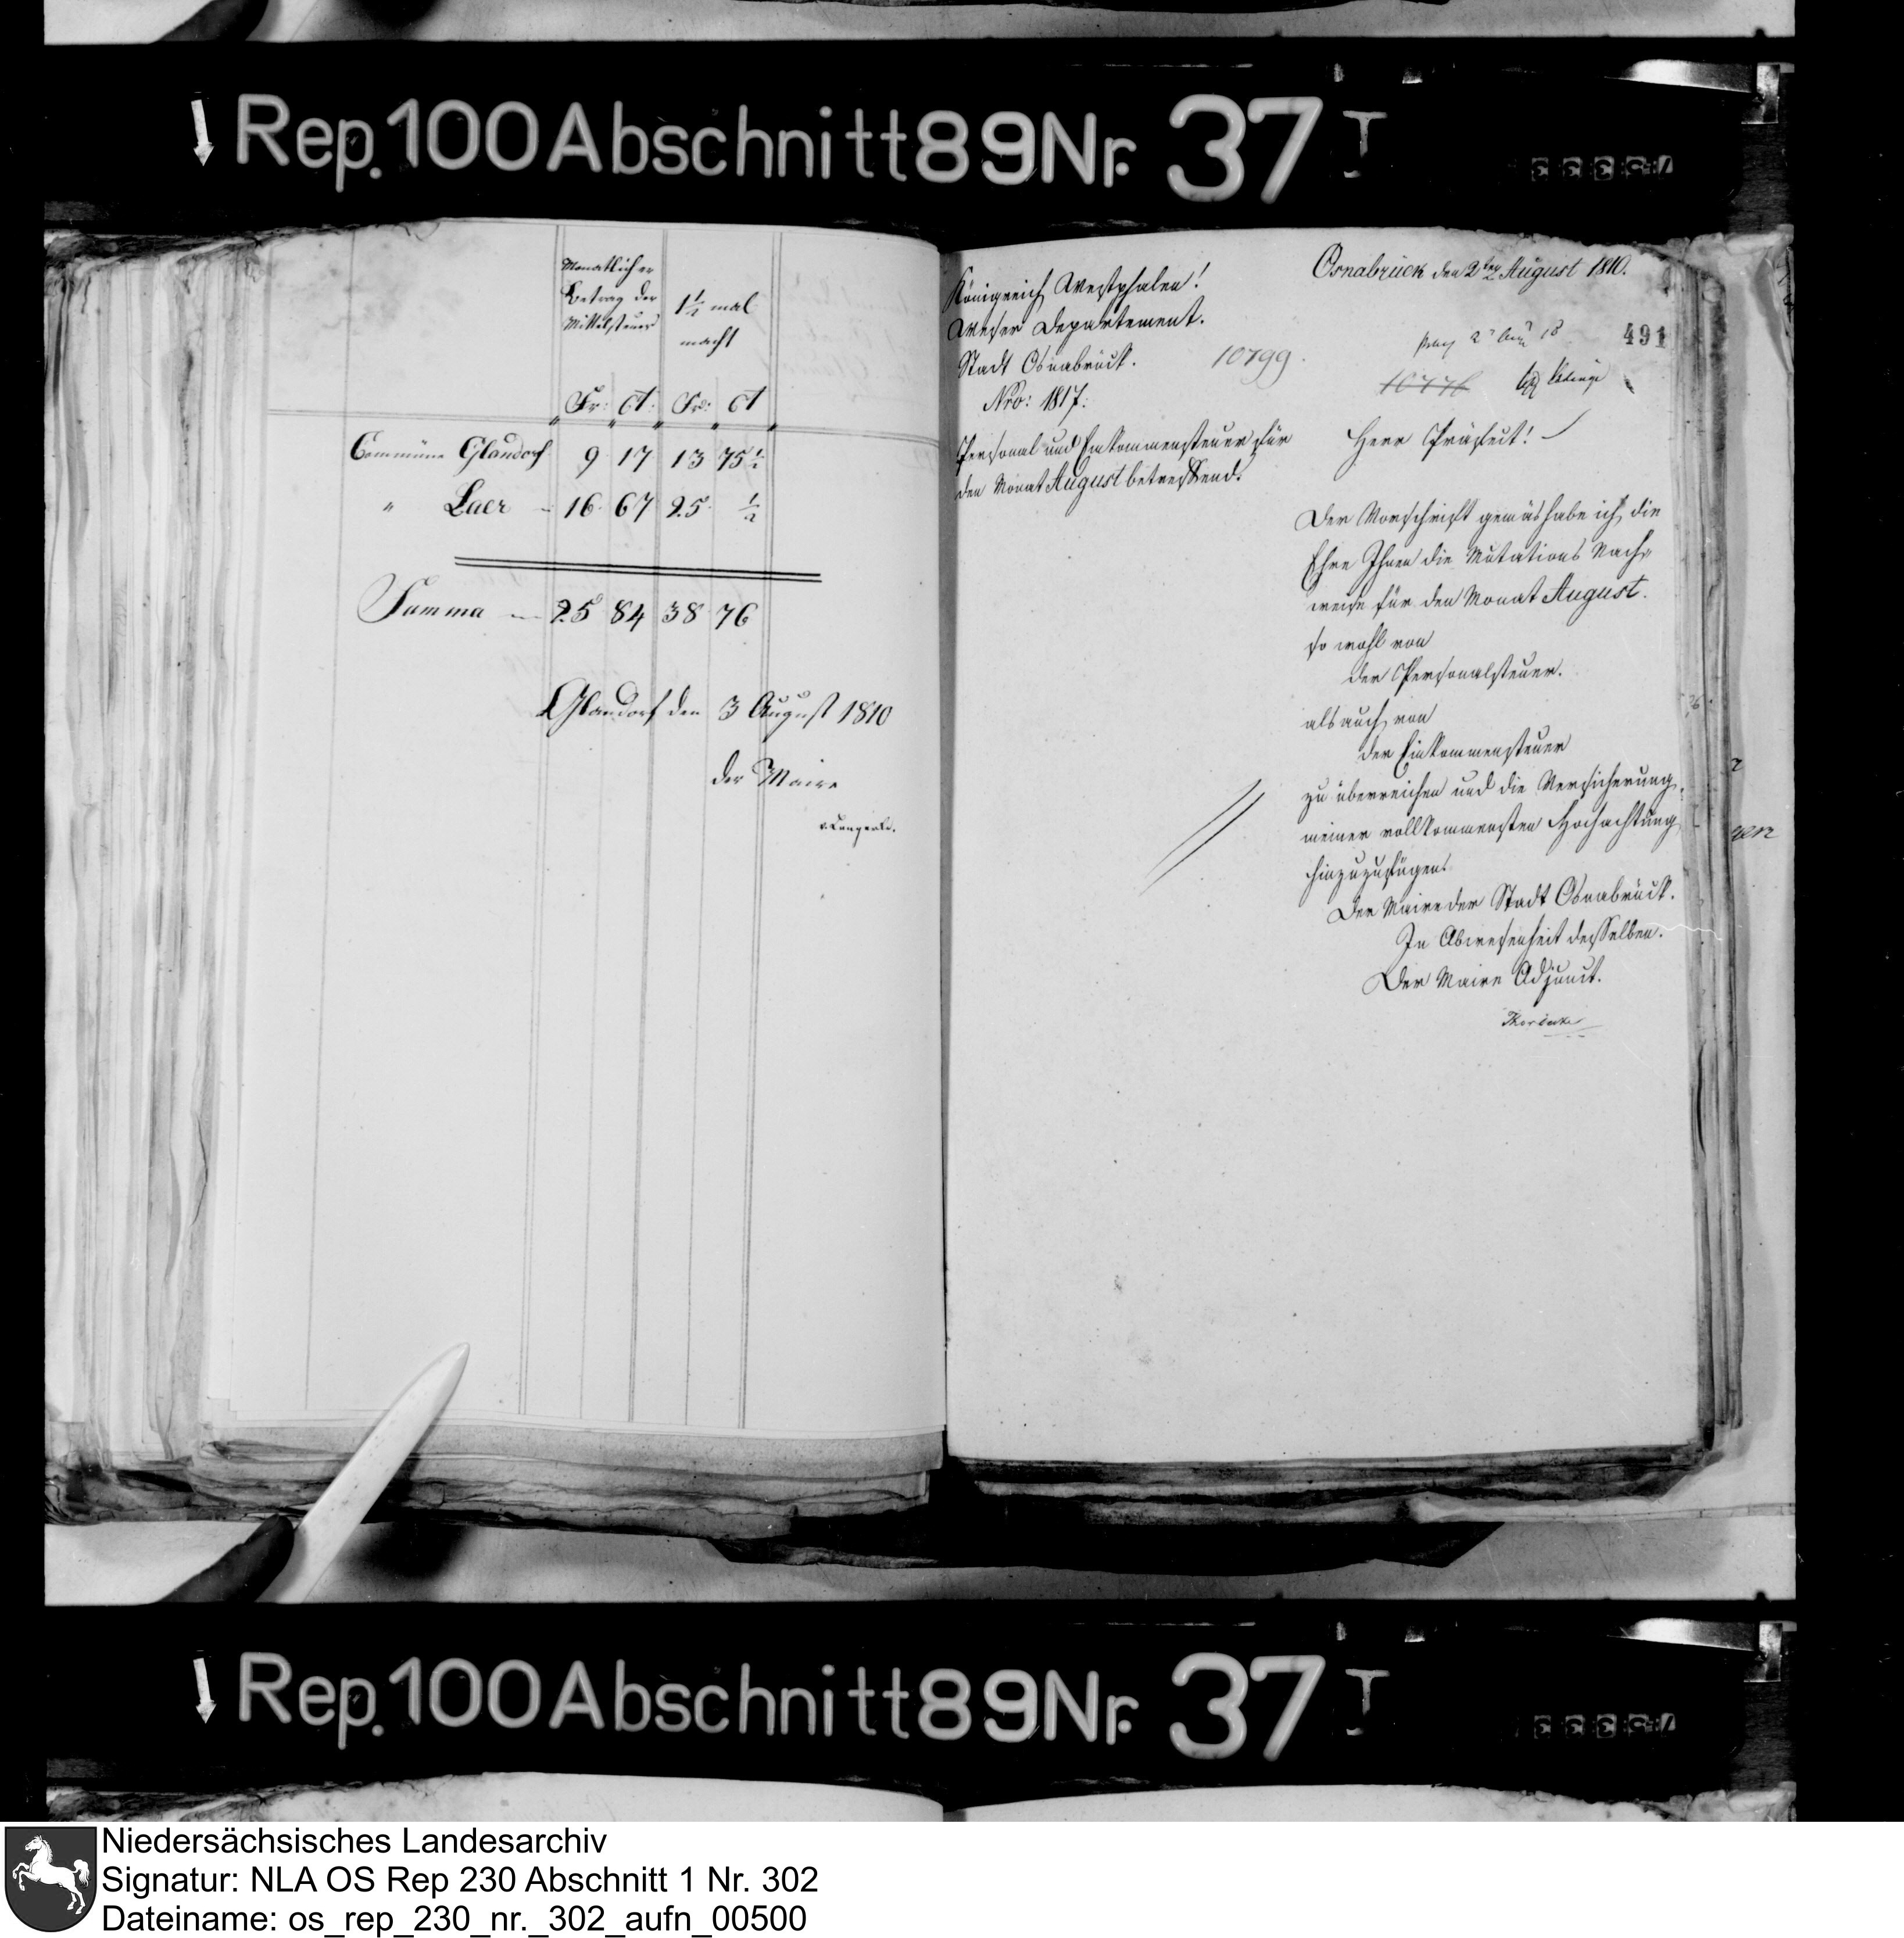 Rep. 100 Abschnitt 89 Nr. 37 I
Monatlicher
Betrag der
Mittelsteuer
1 1/2 mal
macht
Fr: Ct: Fr: Ct
Commüne Glandorf 9 17 13 75 1/2
" Laer — 16 67 25 1/2
Summa — 25 84 38 76
Glandorf den 3 August 1810
der Maire
Königreich Westphalen!
Weser Departement.
Stadt Osnabrück.
Nro: 1817.
10799.
Personal und Einkommensteuer für
den Monat August betreffend.
Osnabrück den 2ten August 1810.
491
Herr Präfect!
Der Vorschrift gemäs habe ich die
Ehre Ihnen die Mutations Nach-
weise für den Monat August.
so wohl von
der Personalsteuer.
als auch von
der Einkommensteuer
zu überreichen und die Versicherung
meiner vollkommensten Hochachtung
hinzuzufügen.
Der Maire der Stadt Osnabrück.
In Abwesenheit desselben.
Der Maire Adjunct.
Rep. 100 Abschnitt 89 Nr. 37 I
Niedersächsisches Landesarchiv
Signatur: NLA OS Rep 230 Abschnitt 1 Nr. 302
Dateiname: os_rep_230_nr._302_aufn_00500